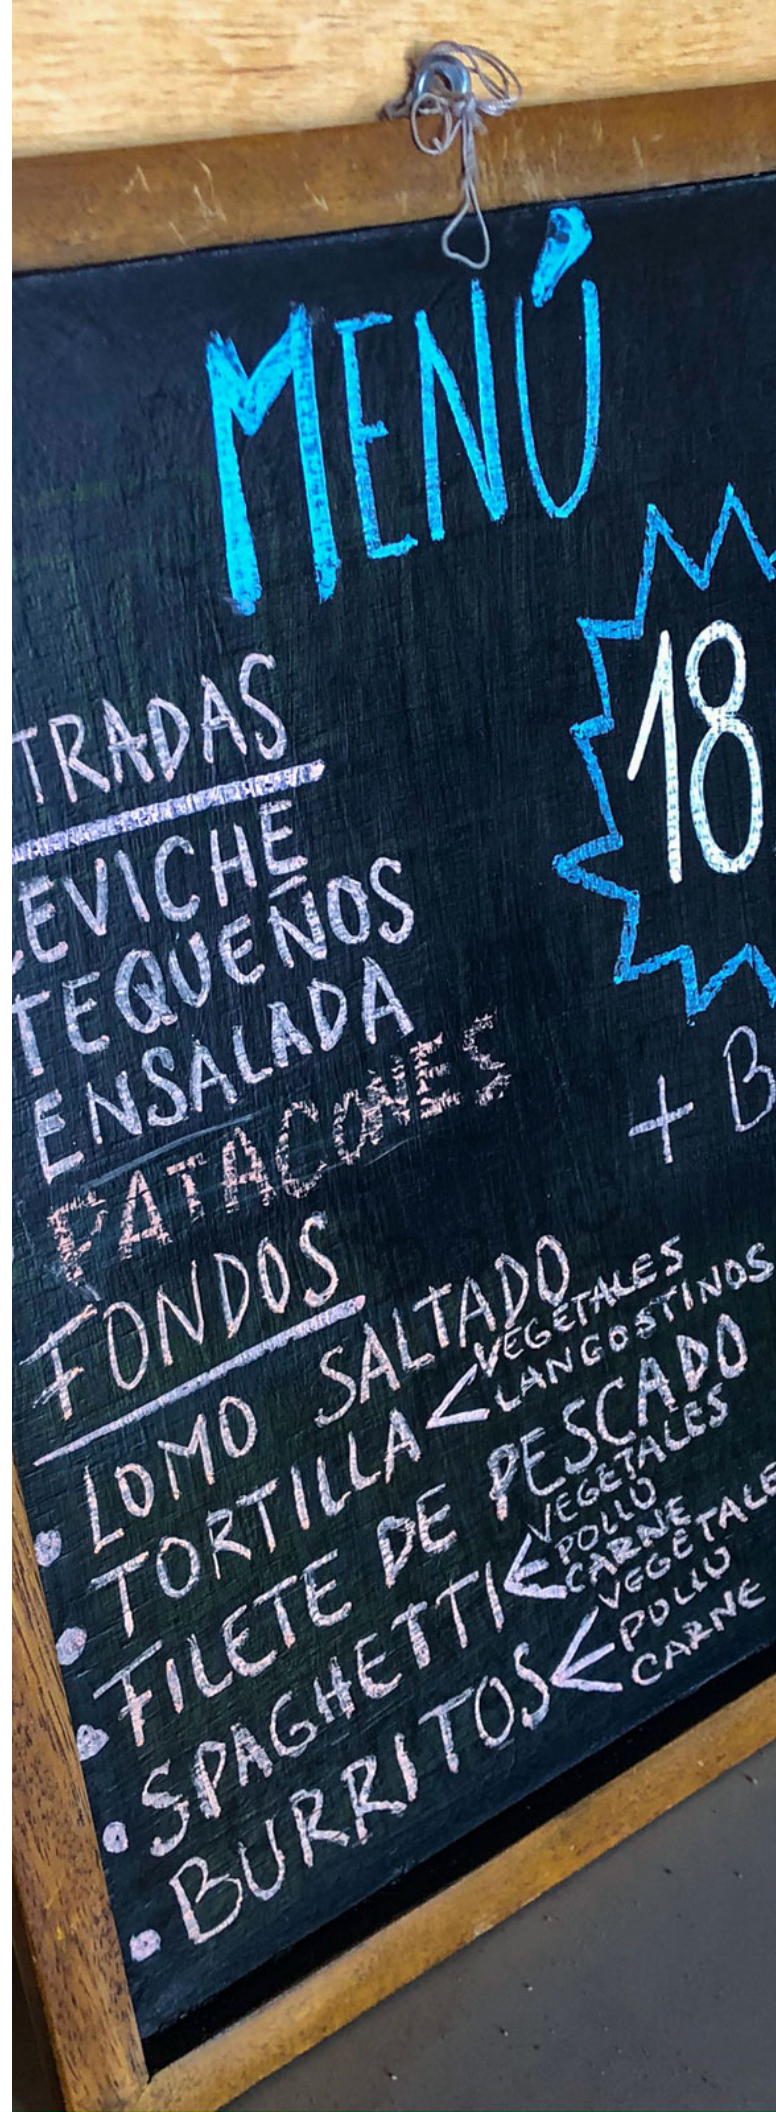 MENÚ
18
TRADAS
CEVICHE
TEQUEÑOS
ENSALADA
PATACONES
+ B
FONDOS
• LOMO SALTADO
• TORTILLA < VEGETALES
LANGOSTINOS
• FILETE DE PESCADO
• SPAGHETTI < VEGETALES
POLLO
CARNE
• BURRITOS < VEGETALE
POLLO
CARNE